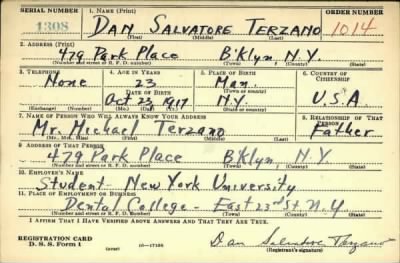 SERIAL NUMBER 1. NAME (Print) ORDER NUMBER
1308 DAN SALVATORE TERZANO 1014
(First) (Middle) (Last)
2. ADDRESS (Print)
479 Park Place B'Klyn N.Y.
(Number and street or R. F. D. number) (Town) (County) (State)
3. TELEPHONE 4. AGE IN YEARS 5. PLACE OF BIRTH 6. COUNTRY OF CITIZENSHIP
None 23 Man.
DATE OF BIRTH (Town or county)
Oct 23, 1917 N.Y. U.S.A
(Exchange) (Number) (Mo.) (Day) (Yr.) (State or country)
7. NAME OF PERSON WHO WILL ALWAYS KNOW YOUR ADDRESS 8. RELATIONSHIP OF THAT PERSON
Mr. Michael Terzano Father
(Mr., Mrs., Miss) (First) (Middle) (Last)
9. ADDRESS OF THAT PERSON
479 Park Place B'Klyn, N.Y.
(Number and street or R. F. D. number) (Town) (County) (State)
10. EMPLOYER'S NAME
Student - New York University
11. PLACE OF EMPLOYMENT OR BUSINESS
Dental College - East 23rd St N.Y
(Number and street or R. F. D. number) (Town) (County) (State)
I AFFIRM THAT I HAVE VERIFIED ABOVE ANSWERS AND THAT THEY ARE TRUE.
REGISTRATION CARD
D. S. S. Form 1 (over) Dan Salvatore Terzano
(Registrant's signature)